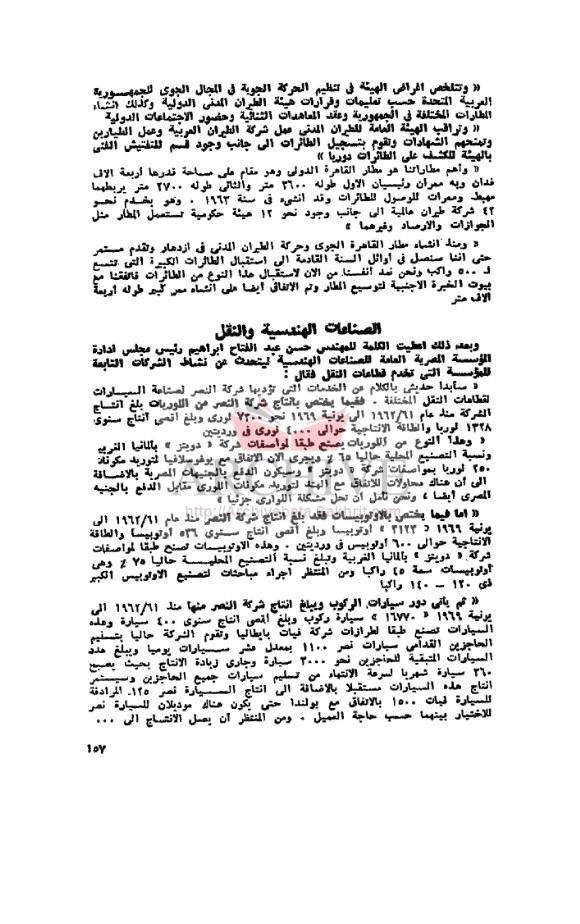 « وتتلخص أغراض الهيئة فى تنظيم الحركة الجوية فى المجال الجوى للجمهورية
العربية المتحدة حسب تعليمات وقرارات هيئة الطيران المدنى الدولية وكذلك انشاء
المطارات المختلفة فى الجمهورية وعقد المعاهدات الثنائية وحضور الاجتماعات الدولية
« وتراقب الهيئة العامة للطيران المدنى عمل شركة الطيران العربية وعمل الطيارين
وتمنحهم الشهادات وتقوم بتسجيل الطائرات الى جانب وجود قسم للتفتيش الفنى
بالهيئة للكشف على الطائرات دوريا »
« وأهم مطاراتنا هو مطار القاهرة الدولى وهو مقام على مساحة قدرها أربعة الاف
فدان وبه ممران رئيسيان الاول طوله ٣٦٠٠ متر والثانى طوله ٢٧٠٠ متر يربطهما
مهبط وممرات للوصول للطائرات وقد انشىء فى سنة ١٩٦٣ . وهو يخدم نحو
٤٢ شركة طيران عالمية الى جانب وجود نحو ١٢ هيئة حكومية تستعمل المطار مثل
الجوازات والارصاد وغيرهما »
« ومنذ انشاء مطار القاهرة الجوى وحركة الطيران المدنى فى ازدهار وتقدم مستمر
حتى أننا سنصل فى أوائل السنة القادمة الى استقبال الطائرات الكبيرة التى تتسع
لـ ٥٠٠ راكب ونحن نعد أنفسنا من الان لاستقبال هذا النوع من الطائرات فاتفقنا مع
بيوت الخبرة الاجنبية لتوسيع المطار وتم الاتفاق أيضا على انشاء ممر كبير طوله أربعة
آلاف متر
الصناعات الهندسية والنقل
وبعد ذلك أعطيت الكلمة للمهندس حسن عبد الفتاح ابراهيم رئيس مجلس ادارة
المؤسسة المصرية العامة للصناعات الهندسية ليتحدث عن نشاط الشركات التابعة
للمؤسسة التى تخدم قطاعات النقل فقال :
« سأبدأ حديثى بالكلام عن الخدمات التى تؤديها شركة النصر لصناعة السيارات
لقطاعات النقل المختلفة . ففيما يختص بانتاج شركة النصر من اللوريات بلغ انتاج
الشركة منذ عام ١٩٦٢/٦١ الى يونية ١٩٦٩ نحو ٧٣٠٠ لورى وبلغ أقصى انتاج سنوى
١٣٢٨ لوريا والطاقة الانتاجية حوالى ٤٠٠٠ لورى فى ورديتين
« وهذا النوع من اللوريات يصنع طبقا لمواصفات شركة « دويتز » بألمانيا الغربية
ونسبة التصنيع المحلية حاليا ٦٥ ٪ ويجرى الان الاتفاق مع يوغوسلافيا لتوريد مكونات
٢٥٠ لوريا بمواصفات شركة « دويتز » وسيكون الدفع بالجنيهات المصرية بالاضافة
الى أن هناك محاولات للاتفاق مع الهند لتوريد مكونات اللورى مقابل الدفع بالجنيه
المصرى أيضا ، ونحن نأمل أن تحل مشكلة اللوارى جزئيا »
« أما فيما يختص بالاوتوبيسات فقد بلغ انتاج شركة النصر منذ عام ١٩٦٢/٦١ الى
يونية ١٩٦٩ « ٣١٢٣ » أوتوبيسا وبلغ أقصى انتاج سنوى ٥٣٦ أوتوبيسا والطاقة
الانتاجية حوالى ٦٠٠ أوتوبيس فى ورديتين . وهذه الاوتوبيسات تصنع طبقا لمواصفات
شركة « دويتز » بألمانيا الغربية وتبلغ نسبة التصنيع المحلية حاليا ٧٥ ٪ وهى
أوتوبيسات سعة ٤٥ راكبا ومن المنتظر اجراء مباحثات لتصنيع الاوتوبيس الكبير
ذى ١٢٠ — ١٤٠ راكبا
« ثم يأتى دور سيارات الركوب ويبلغ انتاج شركة النصر منها منذ ١٩٦٢/٦١ الى
يونية ١٩٦٩ « ١٦٧٧٠ » سيارة ركوب وبلغ أقصى انتاج سنوى ٤٠٠ سيارة وهذه
السيارات تصنع طبقا لطرازات شركة فيات بايطاليا وتقوم الشركة حاليا بتسليم
الحاجزين القدامى سيارات نصر ١١٠٠ بمعدل عشر سيارات يوميا ويبلغ عدد
السيارات المتبقية للحاجزين نحو ٣٠٠٠ سيارة وجارى زيادة الانتاج بحيث يصبح
٣٦٠ سيارة شهريا لسرعة الانتهاء من تسليم سيارات جميع الحاجزين وسيستمر
انتاج هذه السيارات مستقبلا بالاضافة الى انتاج السيارة نصر ١٢٥ المرادفة
للسيارة فيات ١٥٠٠ بالاتفاق مع بولندا حتى يكون هناك موديلان للسيارة نصر
للاختيار بينهما حسب حاجة العميل . ومن المنتظر أن يصل الانتاج الى ...
١٥٧
ARCHIVE
http://Archivebeta.Sakhrit.com